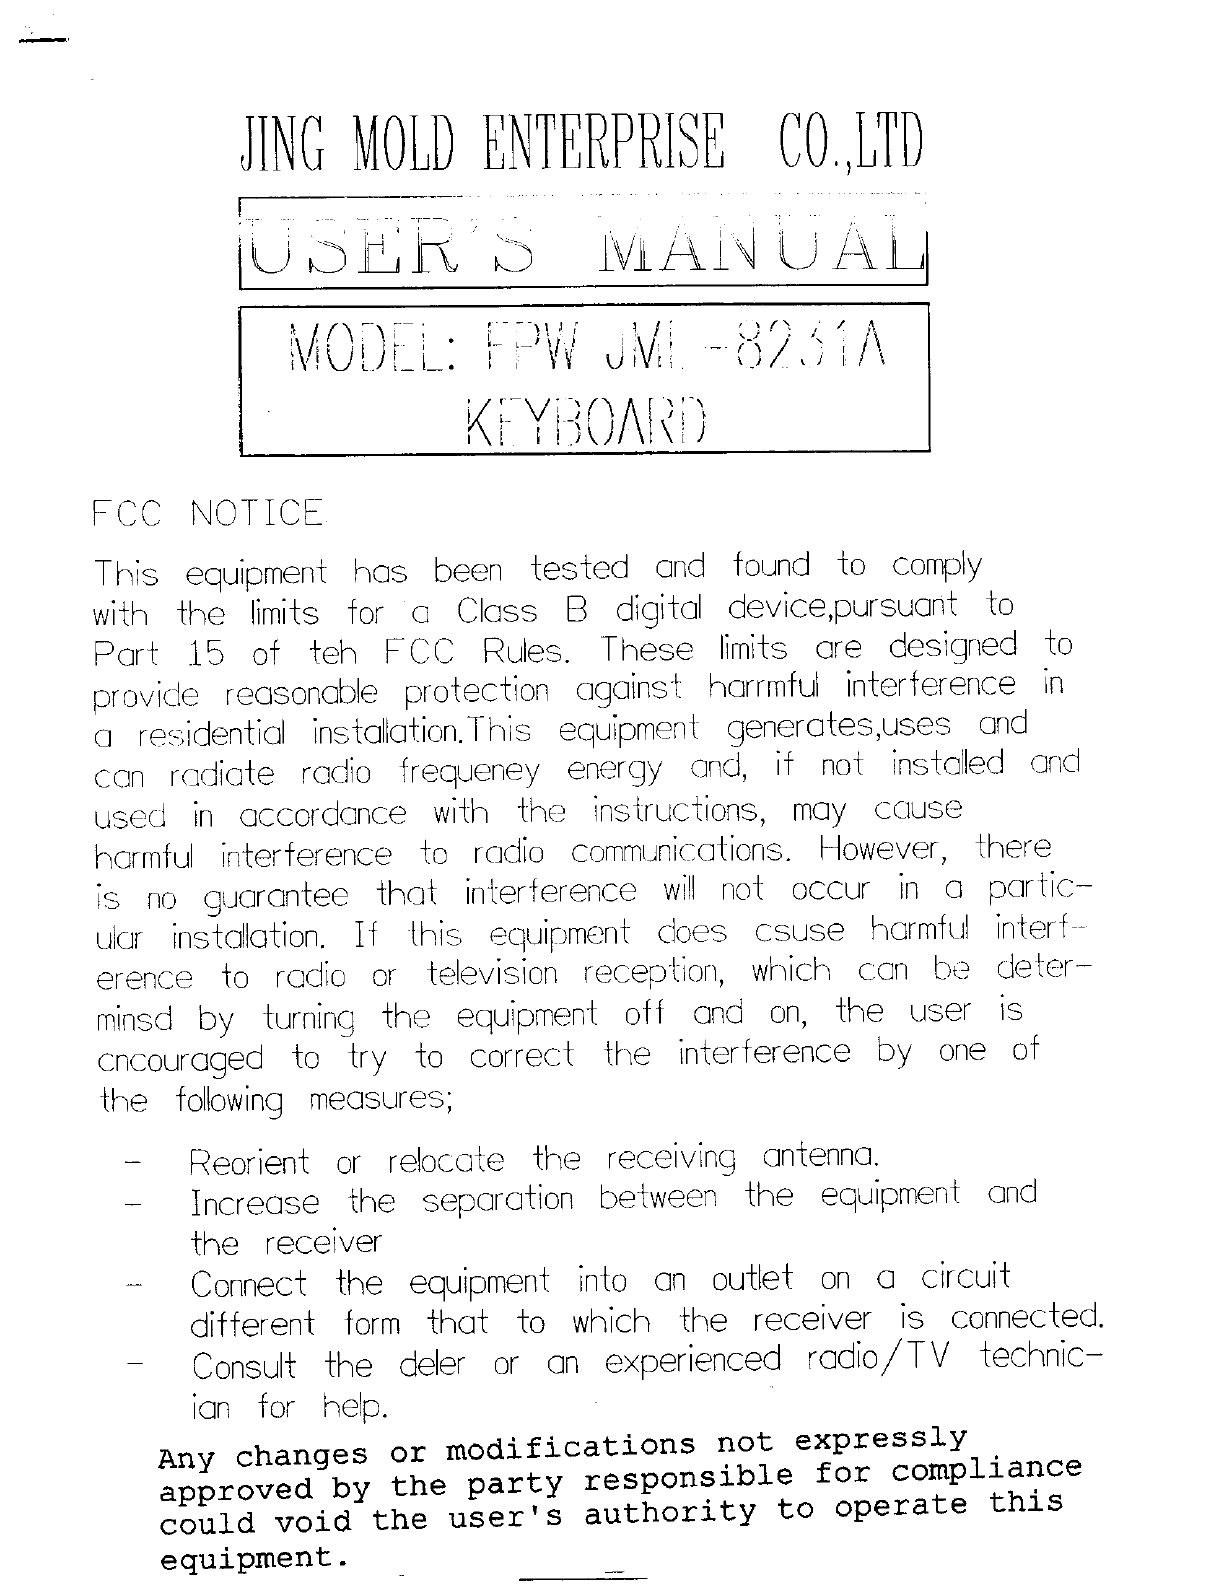 JING MOLD ENTERPRISE CO.,LTD
USER'S MANUAL
MODEL: FPW JML-8231A
KEYBOARD
FCC NOTICE
This equipment has been tested and found to comply
with the limits for a Class B digital device,pursuant to
Part 15 of teh FCC Rules. These limits are designed to
provide reasonable protection against harrmful interference in
a residential installation.This equipment generates,uses and
can radiate radio frequeney energy and, if not installed and
used in accordance with the instructions, may cause
harmful interference to radio communications. However, there
is no guarantee that interference will not occur in a partic-
ular installation. If this equipment does csuse harmful interf-
erence to radio or television reception, which can be deter-
minsd by turning the equipment off and on, the user is
cncouraged to try to correct the interference by one of
the following measures;
- Reorient or relocate the receiving antenna.
- Increase the separation between the equipment and
the receiver
- Connect the equipment into an outlet on a circuit
different form that to which the receiver is connected.
- Consult the deler or an experienced radio/TV technic-
ian for help.
Any changes or modifications not expressly
approved by the party responsible for compliance
could void the user's authority to operate this
equipment.